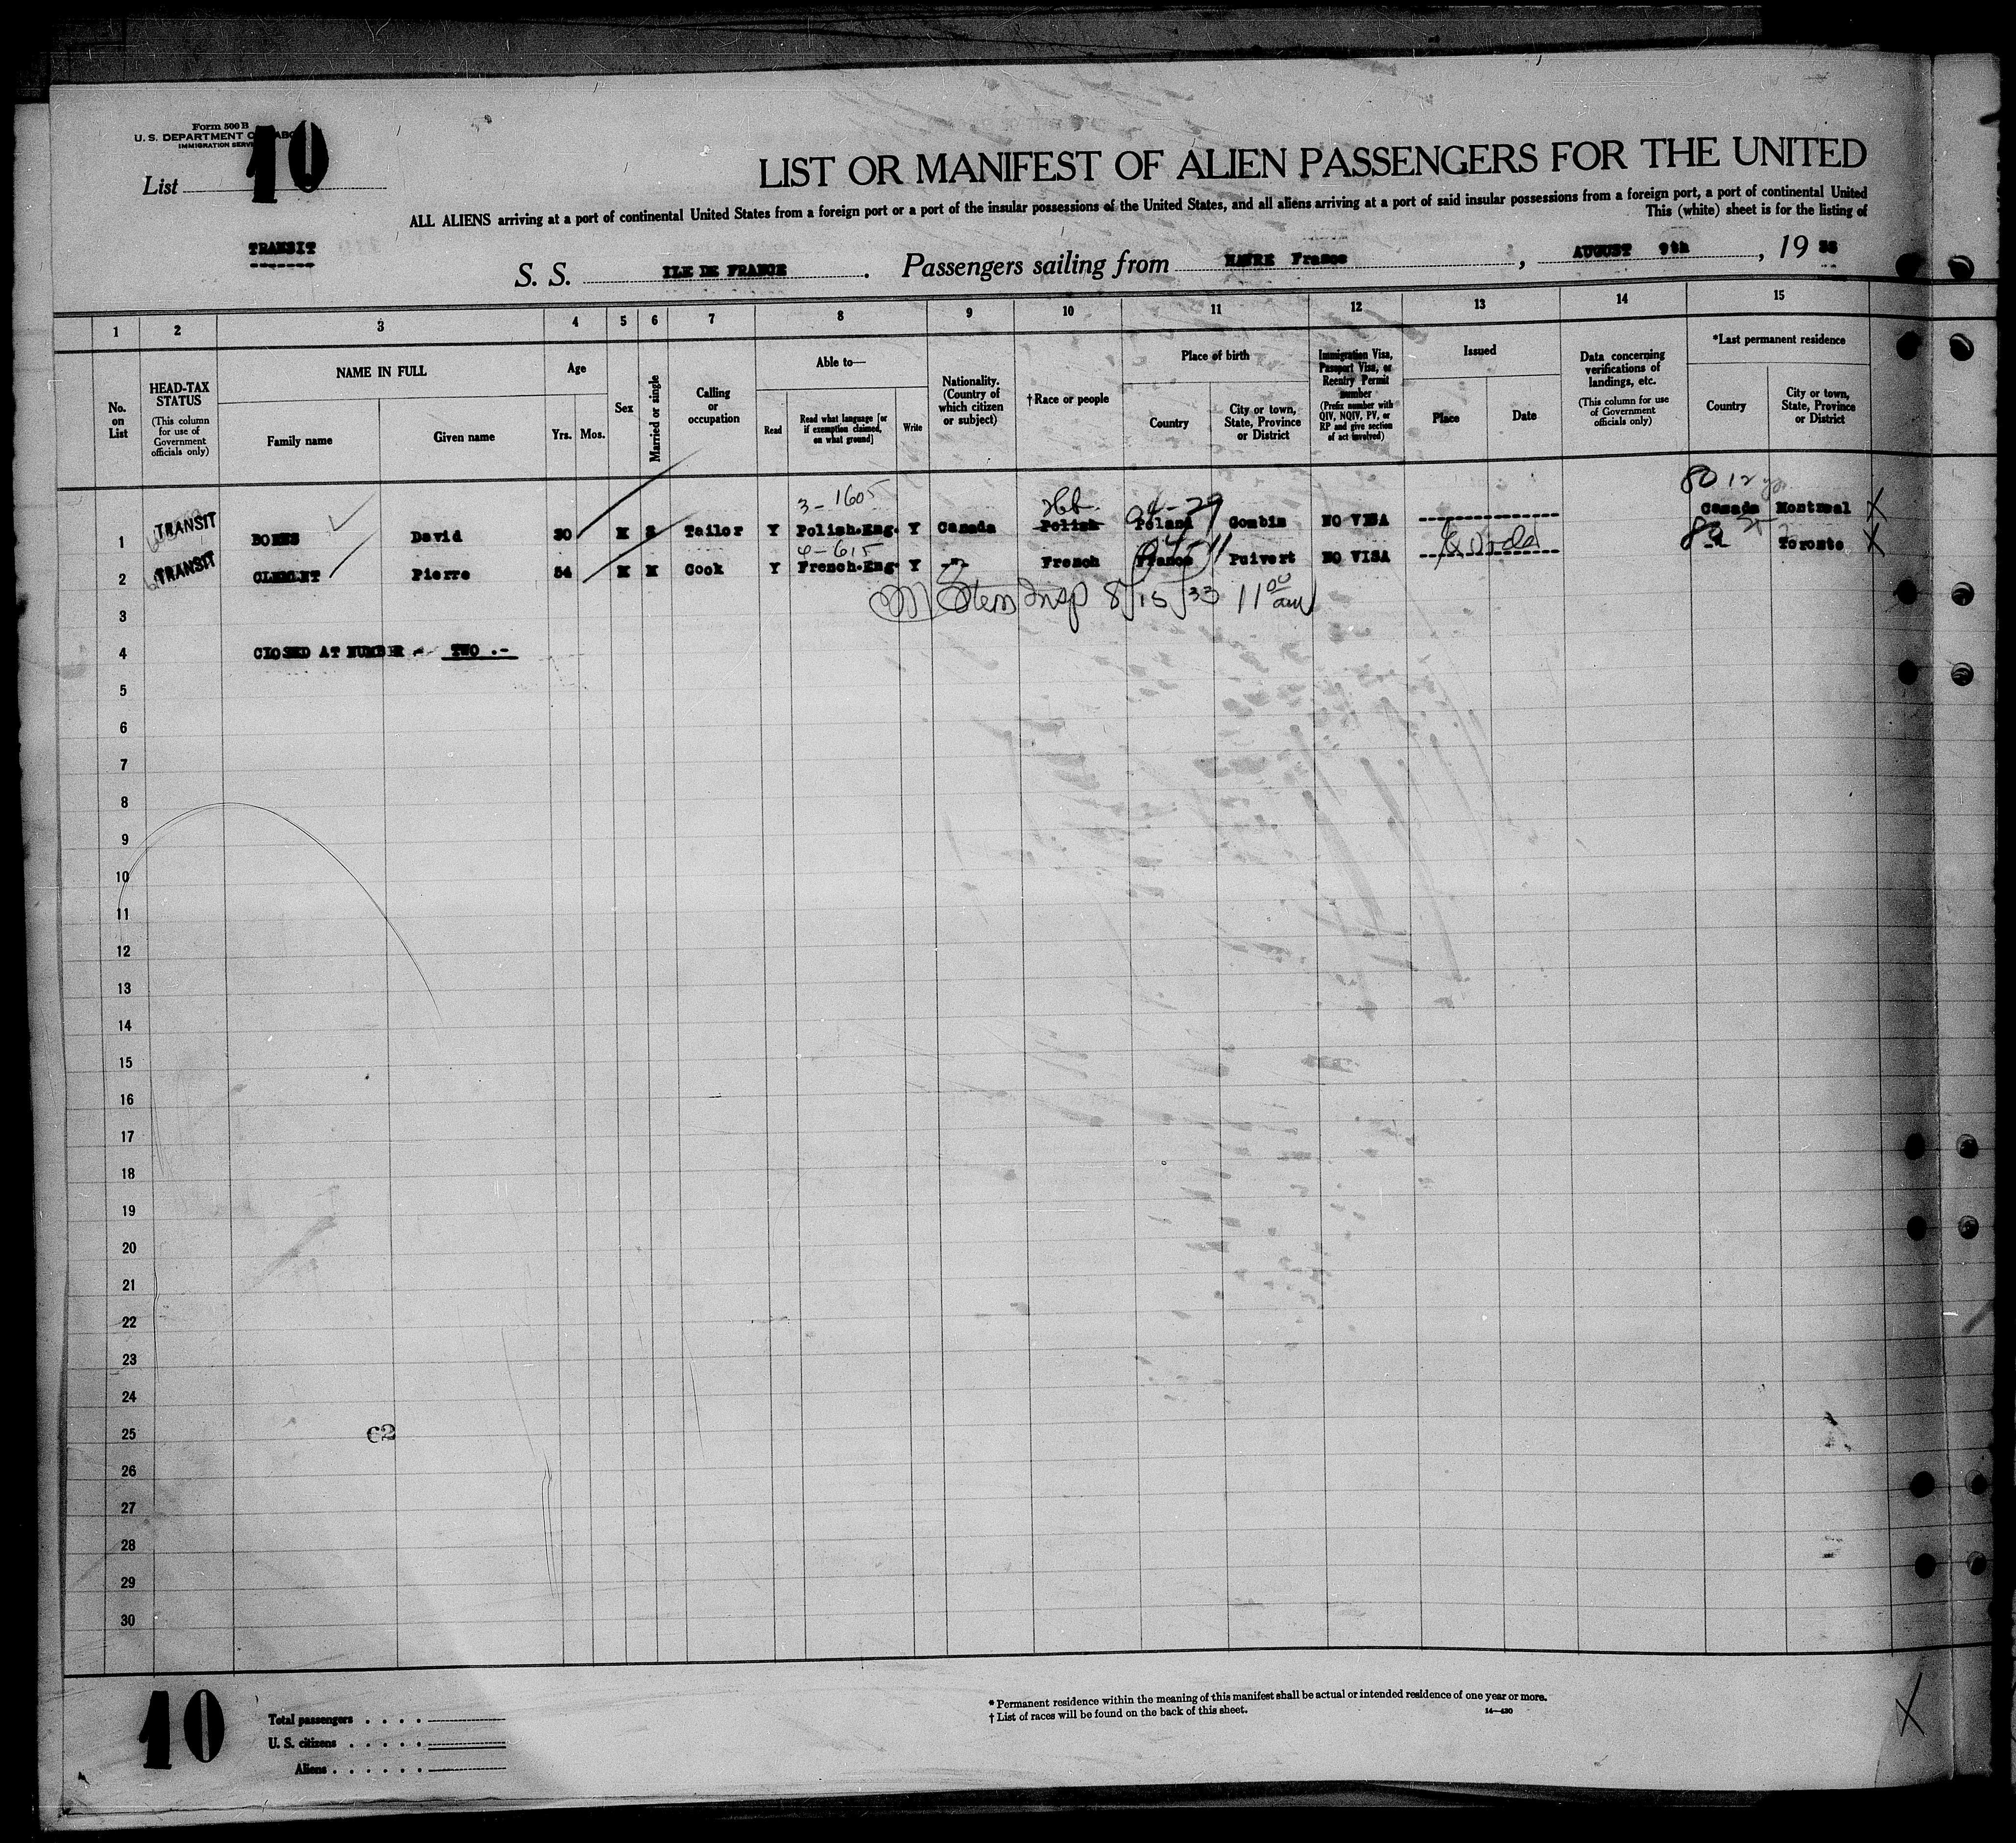 Form 500 B
U. S. DEPARTMENT OF LABOR
IMMIGRATION SERVICE
List 10
LIST OR MANIFEST OF ALIEN PASSENGERS FOR THE UNITED
ALL ALIENS arriving at a port of continental United States from a foreign port or a port of the insular possessions of the United States, and all aliens arriving at a port of said insular possessions from a foreign port, a port of continental United
This (white) sheet is for the listing of
TRANSIT
S. S. ILE DE FRANCE . Passengers sailing from HAVRE France , AUGUST 9th , 19 33
1 2 3 4 5 6 7 8 9 10 11 12 13 14 15
No. on List
HEAD-TAX STATUS (This column for use of Government officials only)
NAME IN FULL
Family name
Given name
Age
Yrs. Mos.
Sex
Married or single
Calling or occupation
Able to—
Read
Read what language [or if exemption claimed, on what ground]
Write
Nationality. (Country of which citizen or subject)
†Race or people
Place of birth
Country
City or town, State, Province or District
Immigration Visa, Passport Visa, or Reentry Permit number (Prefix number with QIV, NQIV, PV, or RP and give section of act involved)
Issued
Place
Date
Data concerning verifications of landings, etc. (This column for use of Government officials only)
*Last permanent residence
Country
City or town, State, Province or District
3-1605 Heb. 80 12 yr
1 TRANSIT David 30 M S Tailor Y Polish.Eng. Y Canada Polish Poland Gombin NO VISA Canada Montreal X
4-615
2 TRANSIT CLEMENT Pierre 54 M M Cook Y French.Eng. Y -"- French France Puivert NO VISA Toronto X
Insp 8/15/33 11 00 am
3
4 CLOSED AT NUMBER - TWO .-
5
6
7
8
9
10
11
12
13
14
15
16
17
18
19
20
21
22
23
24
25
62
26
27
28
29
30
10
Total passengers . . . .
U. S. citizens . . . . .
Aliens . . . . . .
* Permanent residence within the meaning of this manifest shall be actual or intended residence of one year or more.
† List of races will be found on the back of this sheet.
14—430
X